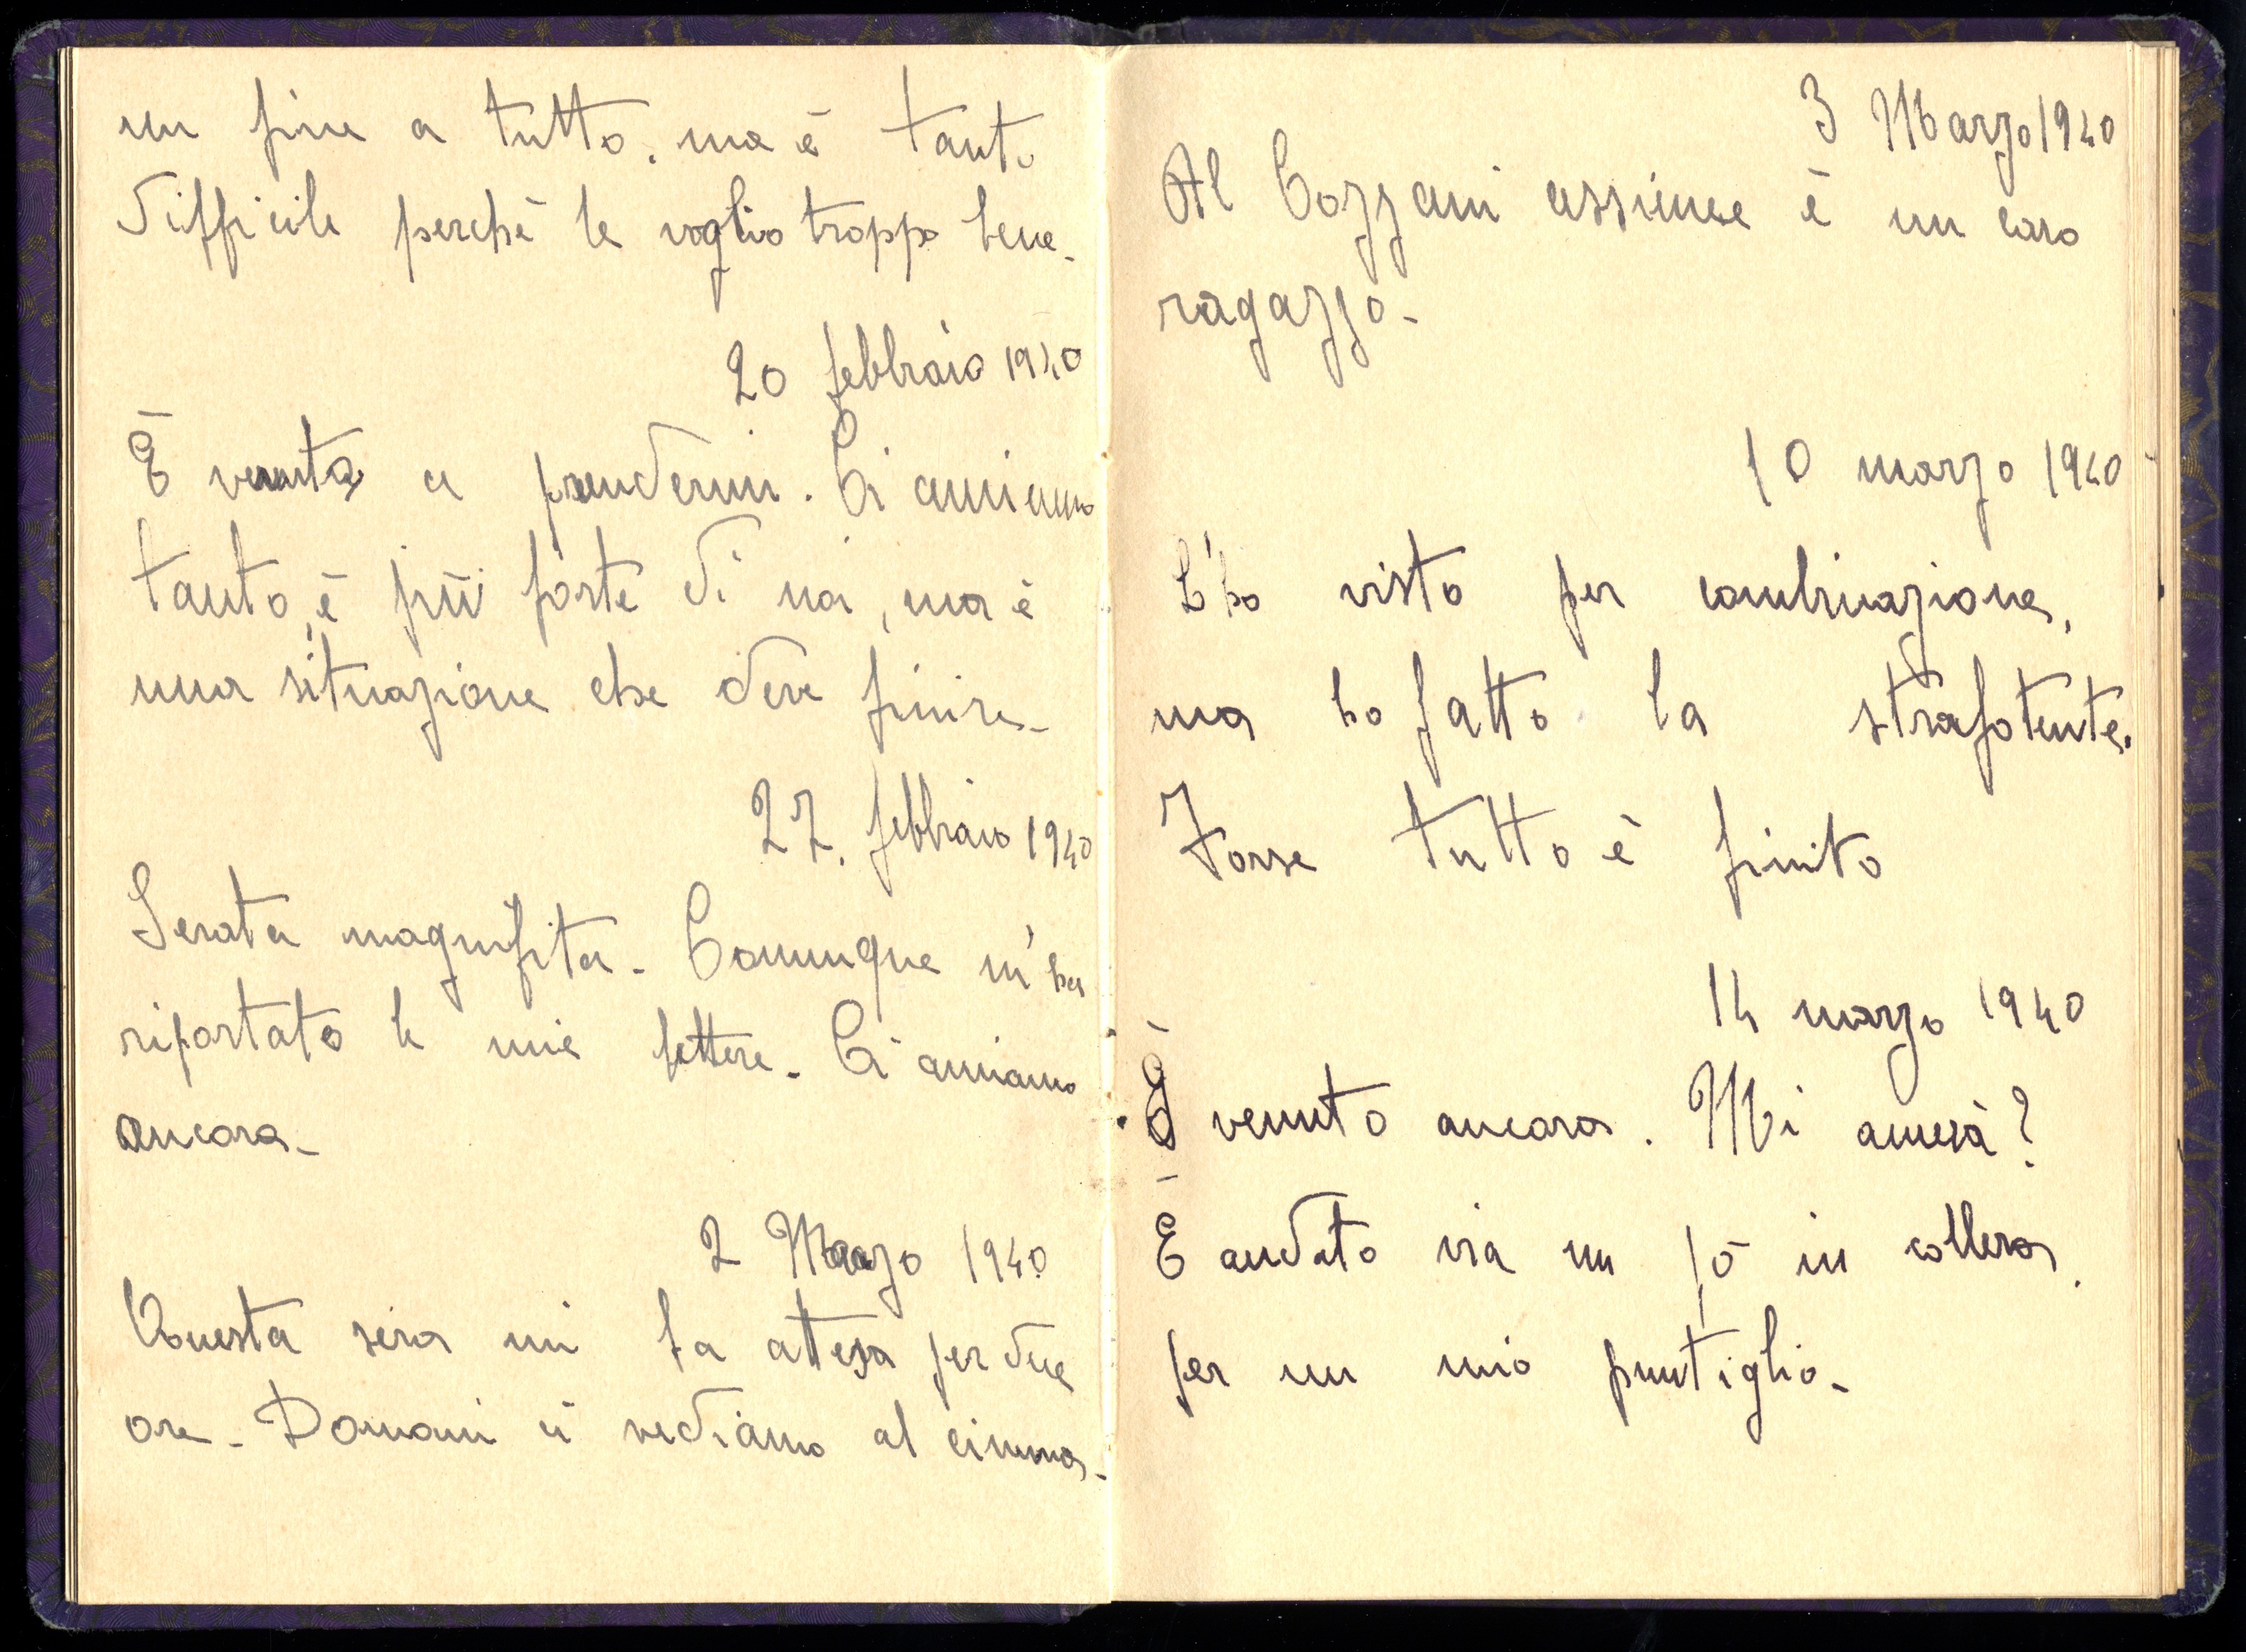 un fine a tutto, ma è tanto
difficile perchè le voglio troppo bene-
20 febbraio 1940
È venuta a prendermi. Ci amiamo
tanto, è più forte di noi, ma è
una situazione che deve finire-
27. febbraio 1940
Serata magnifica- Comunque m'ha
riportato le mie lettere- Ci amiamo
ancora-
2 Marzo 1940
Questa sera mi fa attesa per due
ore- Domani ci vediamo al cinema-
3 Marzo 1940
Al Cozzani assieme è un caro
ragazzo-
10 marzo 1940
L'ho visto per combinazione,
ma ho fatto la strafotente.
Forse tutto è finito
14 marzo 1940
È venuto ancora. Mi amerà?
È andato via un pò in collera,
per un mio puntiglio-